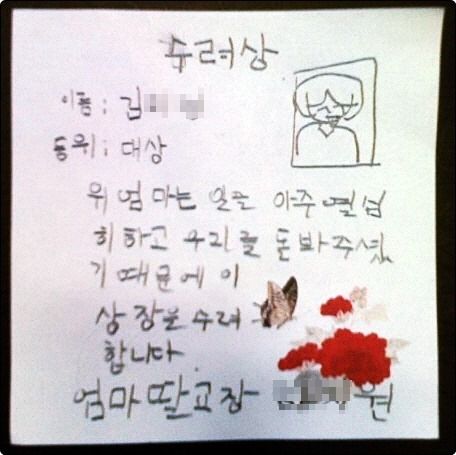 수려상
이름: 김
등위: 대상
위 엄마는 일을 아주 열심
히 하고 우리를 돌바주셨
기 때문에 이
상장을 수려
합니다
엄마딸교장 원